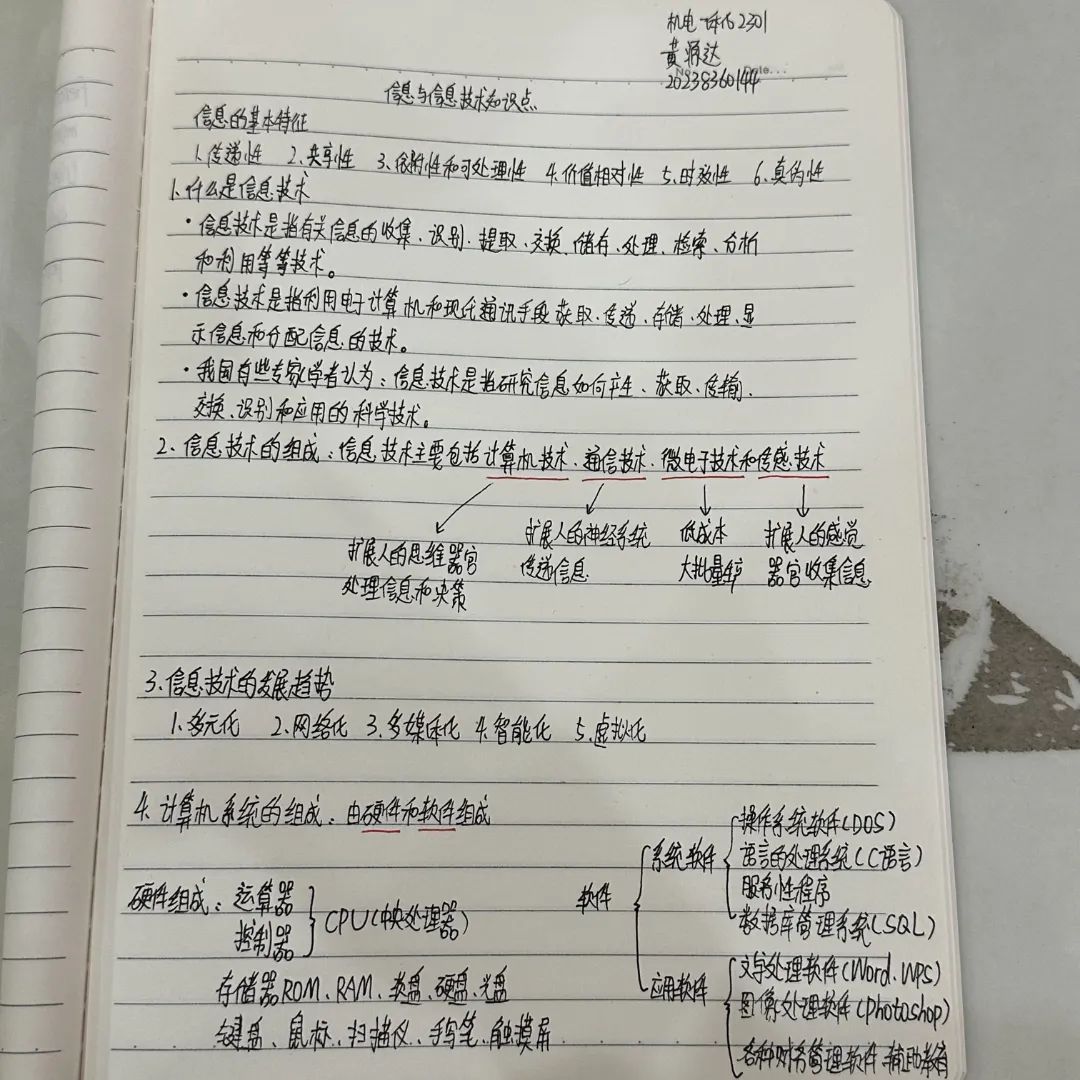 机电一体化2301
黄源达
Date...
20238360144
信息与信息技术知识点
信息的基本特征
1.传递性 2.共享性 3.依附性和可处理性 4.价值相对性 5.时效性 6.真伪性
1.什么是信息技术
·信息技术是指有关信息的收集、识别、提取、交换、储存、处理、检索、分析
和利用等等技术。
·信息技术是指利用电子计算机和现代通讯手段获取、传递、存储、处理、显
示信息和分配信息的技术。
·我国有些专家学者认为:信息技术是指研究信息如何产生、获取、传输、
交换、识别和应用的科学技术。
2.信息技术的组成:信息技术主要包括计算机技术、通信技术、微电子技术和传感技术
扩展人的思维器官
处理信息和决策
扩展人的神经系统
传递信息
低成本
大批量
扩展人的感觉
器官收集信息
3.信息技术的发展趋势
1.多元化 2.网络化 3.多媒体化 4.智能化 5.虚拟化
4.计算机系统的组成:由硬件和软件组成
硬件组成:运算器
控制器
CPU(中央处理器)
存储器ROM、RAM、软盘、硬盘、光盘
键盘、鼠标、扫描仪、手写笔、触摸屏
软件
系统软件
操作系统软件(DOS)
语言的处理系统(C语言)
服务性程序
数据库管理系统(SQL)
应用软件
文字处理软件(Word、WPS)
图像处理软件(Photoshop)
各种财务管理软件、辅助教育